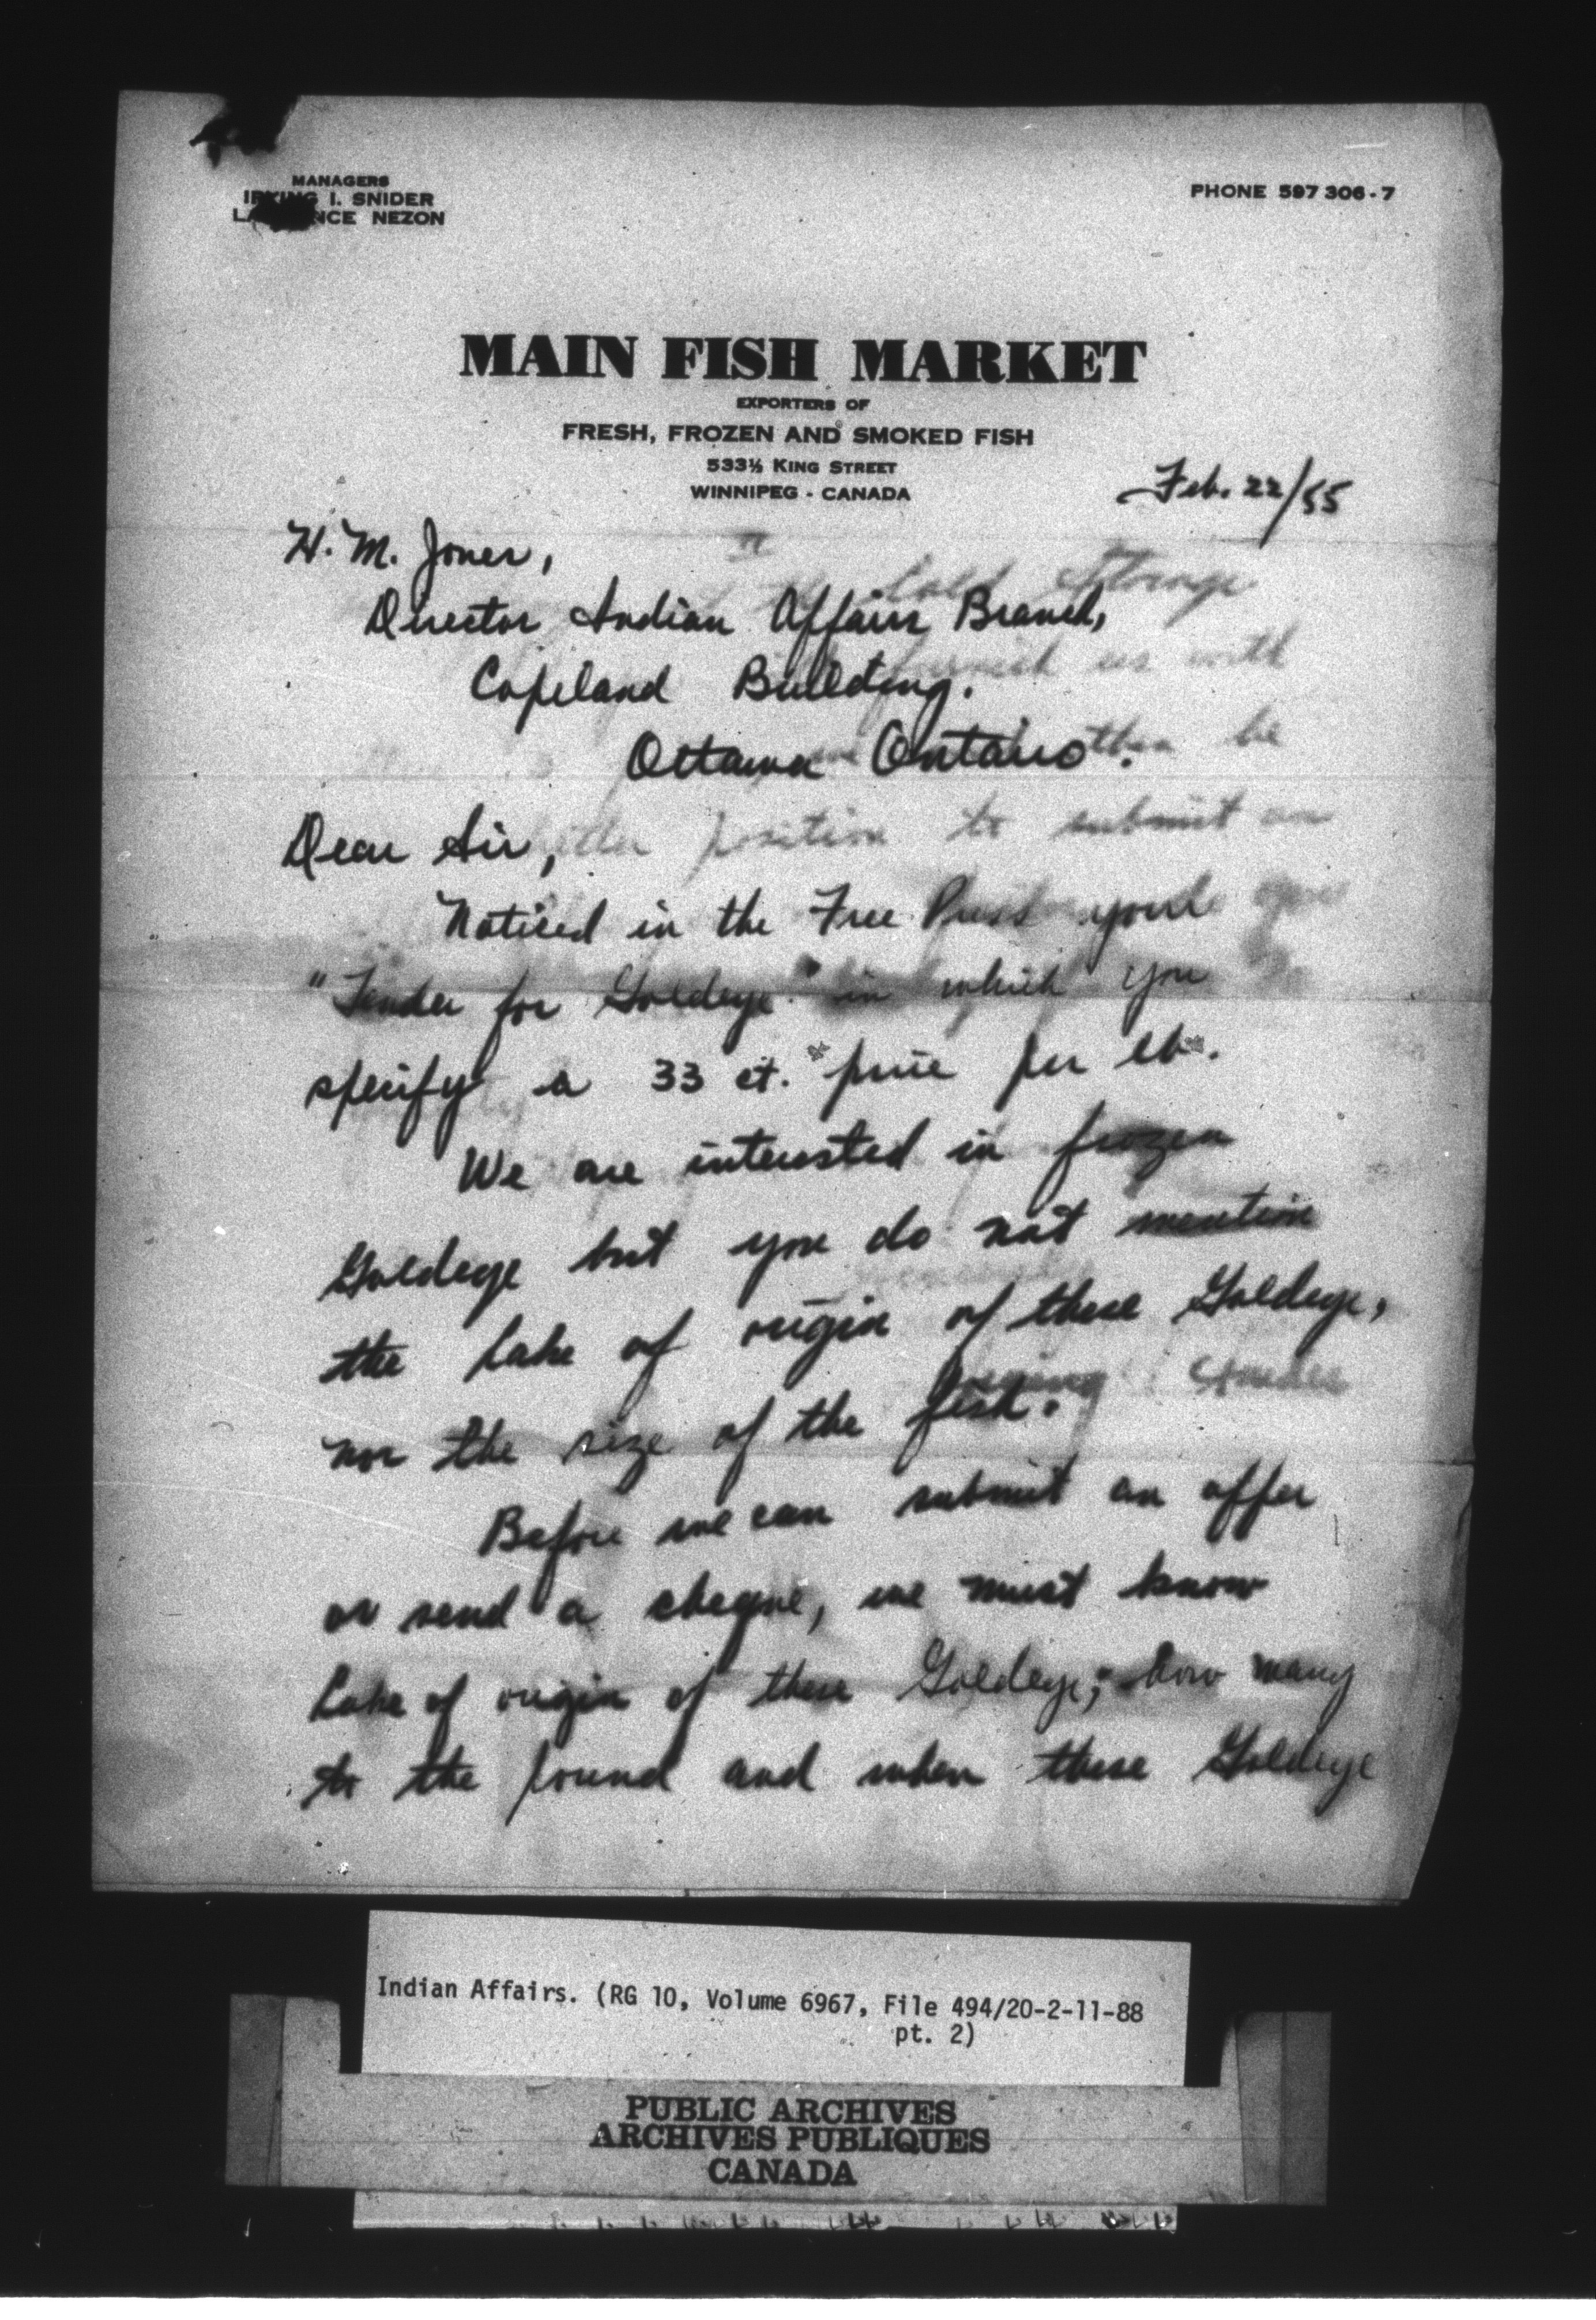 MANAGERS
IRVING I. SNIDER
LAWRENCE NEZON
PHONE 597 306-7
MAIN FISH MARKET
EXPORTERS OF
FRESH, FROZEN AND SMOKED FISH
533½ KING STREET
WINNIPEG - CANADA
Feb. 22/55
H. M. Jones,
Director Indian Affairs Branch,
Copeland Building.
Ottawa Ontario.
Dear Sir,
Noticed in the Free Press your
"Tender for Goldeye" in which you
specify a 33 ct. price per lb.
We are interested in frozen
Goldeye but you do not mention
the Lake of origin of these Goldeye,
nor the size of the fish.
Before we can submit an offer
or send a cheque, we must know
Lake of origin of these Goldeye; how many
to the pound and when these Goldeye
Indian Affairs. (RG 10, Volume 6967, File 494/20-2-11-88
pt. 2)
PUBLIC ARCHIVES
ARCHIVES PUBLIQUES
CANADA